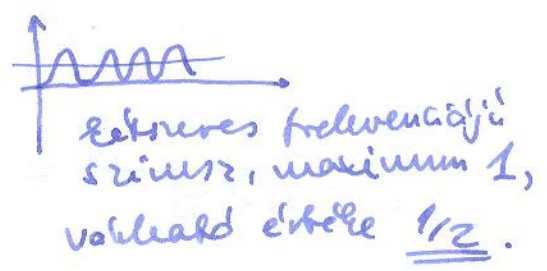 kétszeres frekvenciájú
szinusz, maximum 1,
várható értéke 1/2.